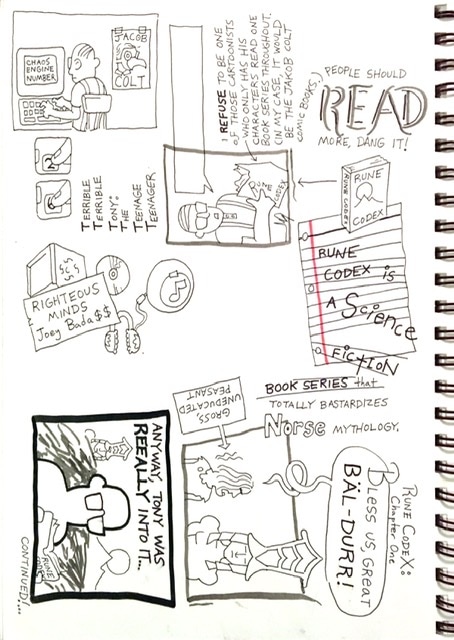 CHAOS
ENGINE
NUMBER
JACOB
COLT
2
TERRIBLE
TERRIBLE
TONY:
THE
TEENAGE
TEENAGER
I REFUSE TO BE ONE
OF THOSE CARTOONISTS
WHO ONLY HAS HIS
CHARACTERS READ ONE
BOOK SERIES THROUGHOUT.
(IN MY CASE, IT WOULD
BE THE JAKOB COLT
COMIC BOOKS.)
PEOPLE SHOULD
READ
MORE, DANG IT!
RUNE CODEX
RUNE
CODEX
RUNE
CODEX is
A Science
FICTION
BOOK SERIES that
TOTALLY BASTARDIZES
Norse MYTHOLOGY.
RIGHTEOUS
MINDS
Joey Bada$$
GROSS,
UNEDUCATED
PEASANT
RUNE CODEX:
Chapter One
BLESS US, GREAT
BÄL-DURR!
ANYWAY, TONY WAS
REEALLY INTO IT...
RUNE
CONTINUED!...